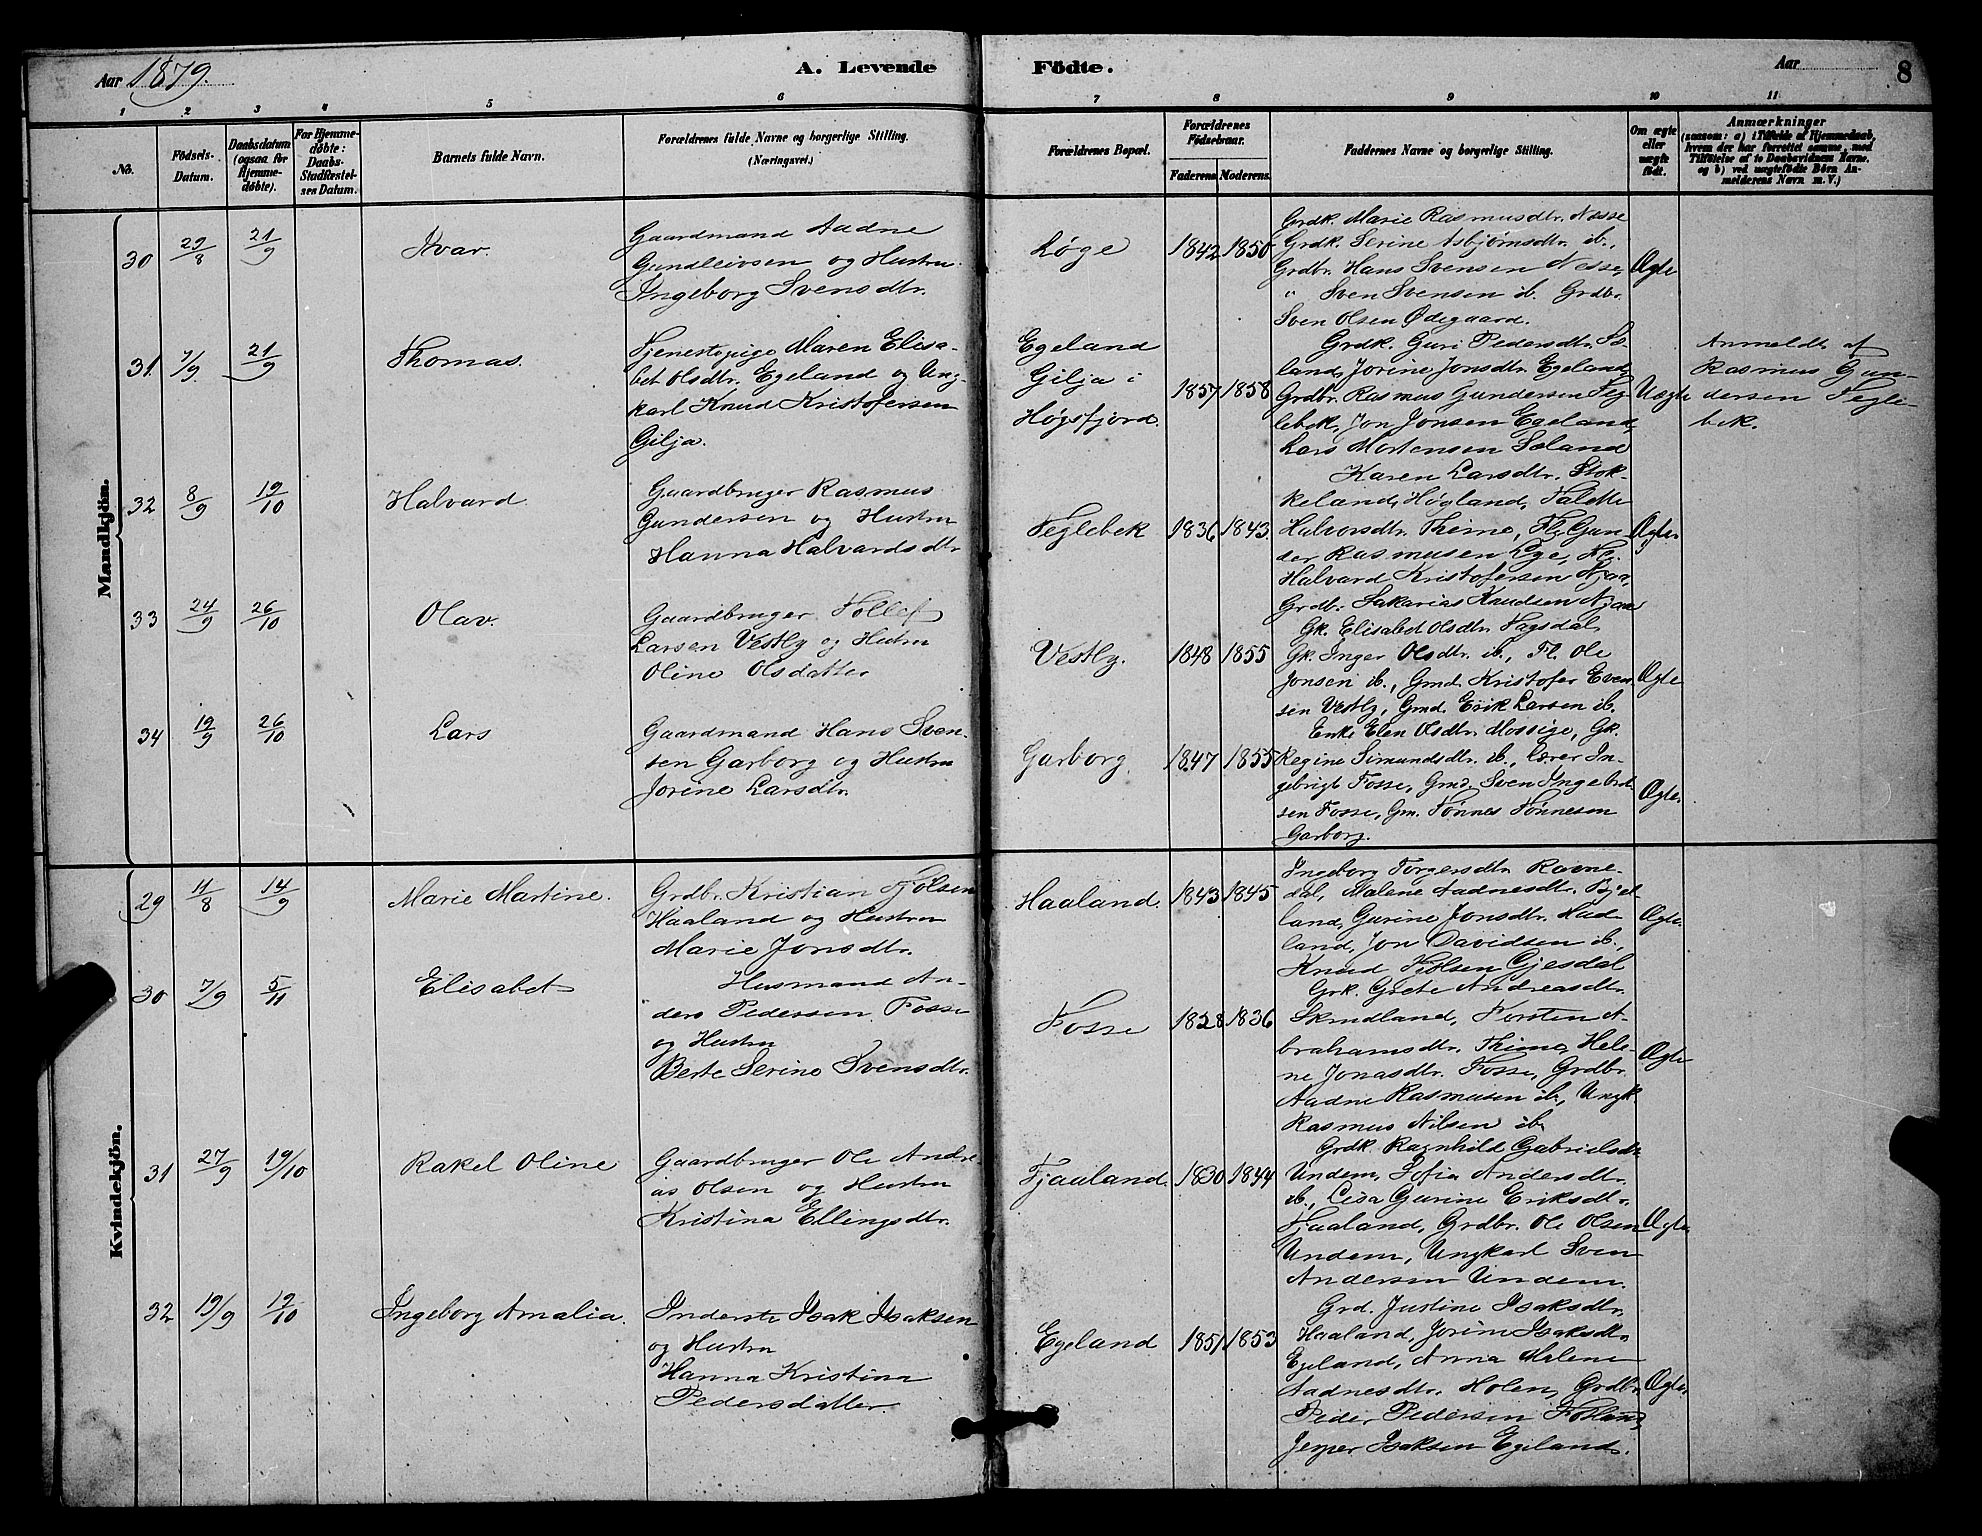 Aar 1879.
A. Levende Födte.
Aar
8
1 2 3 4 5 6 7 8 9 10 11
No.
Födsels-Datum.
Daabsdatum (ogsaa for Hjemme-döbte).
For Hjemme-döbte: Daabs-Stadfæstel-ses Datum.
Barnets fulde Navn.
Forældrenes fulde Navne og borgerlige Stilling.
(Næringsvei.)
Forældrenes Bopæl.
Forældrenes Födselsaar.
Faderens. Moderens.
Faddernes Navne og borgerlige Stilling.
Om ægte eller uægte födt.
Anmærkninger
(saasom: a) i Tilfælde af Hjemmedaab,
hvem der har forrettet samme, med
Tilföielse af to Daabsvidners Navne,
og b) ved uægtefödte Börn An-
melderens Navn m. V.)
Mandkjön.
30 29/8 21/9 Ivar.
Gaardmand Aadne
Gundleivsen og Hustru
Ingeborg Svensdtr.
Løge 1842 1850
Grdk. Marie Rasmusdtr. Nesse
Grdk. Serine Asbjørnsdtr. ib.,
Grdbr. Hans Svensen Nesse,
" Sven Svensen ib. Grdbr.
Sven Olsen Ødegaard.
Ægte
31 7/9 21/9 Thomas.
Tjenestepige Maren Elisa-
bet Olsdtr. Egeland og Ung-
karl Knud Kristofersen
Gilja.
Egeland
Gilja i
Høgsfjord.
1857 1858
Grdk. Guri Pedersdtr. Sø-
land, Jorine Jonsdtr. Egeland,
Grdbr. Rasmus Gundersen Teg-
lebek, Jon Jonsen Egeland,
Lars Mortensen Søland
Uægte
Anmeldt af
Rasmus Gun-
dersen Tegle-
bek.
32 8/9 19/10 Halvard.
Gaardbruger Rasmus
Gundersen og Hustru
Hanna Halvardsdtr
Teglebek 1836 1843
Karen Larsdtr. Stok-
keland, Høgland, Talette
Halvorsdtr. Thime, Fl. Gun-
der Rasmusen Lye,
Halvard Kristofersen Njaa,
Grdb. Sakarias Knudsen Njaa
Ægte
33 24/9 26/10 Olav.
Gaardbruger Tollef
Larsen Vestly og Hustru
Oline Olsdatter
Vestly. 1848 1855
Gk. Elisabet Olsdtr. Fagsdal,
Gk. Inger Olsdtr. ib., Fl. Ole
Jonsen ib., Gmd. Kristofer Even-
sen Vestly, Gmd. Erik Larsen ib.
Ægte
34 19/9 26/10 Lars
Gaardmand Hans Sven-
sen Garborg og Hustru
Jorine Larsdtr.
Garborg. 1847 1855
Enke Elen Olsdtr. Mossige, Gk.
Regine Simundsdtr. ib., Lærer In-
gebrigt Fosse, Gmd. Sven Ingebret-
sen Fosse, Gm. Tønnes Tønnesen
Garborg.
Ægte.
Kvindekjön.
29 11/8 14/9 Marie Martine.
Grdbr. Kristian Fjølsen
Haaland og Hustru
Marie Jonsdtr.
Haaland. 1843 1845
Ingeborg Torgersdtr. Ravne-
dal, Malene Aadnesdtr. Bjet-
land, Gurine Jonsdtr. Had-
land, Jon Davidsen ib.,
Knud Fjølsen Gjesdal
Ægte.
30 7/9 5/11 Elisabet
Husmand An-
ders Pedersen Fosse
og Hustru
Berte Serine Svensdtr.
Fosse 1828 1836
Grk. Grete Andreasdtr.
Skrudland, Torsten A-
brahamsdtr. Thime, Hele-
ne Jonasdtr. Fosse, Grdbr.
Aadne Rasmusen ib., Ungk.
Rasmus Nilsen ib.
Ægte
31 27/9 19/10 Rakel Oline
Gaardbruger Ole Andre-
as Olsen og Hustru
Kristina Ellingsdtr.
Tjaaland. 1830 1844
Grdk. Ragnhild Gabrielsdtr
Undem, Sofia Andersdtr.
ib., Lisa Gurine Eriksdtr.
Tjaaland, Grdbr. Ole Olsen
Undem, Ungkarl Sven
Andersen Undem.
Ægte
32 19/9 19/10 Ingeborg Amalia.
Inderste Isak Isaksen
og Hustru
Hanna Kristina
Pedersdatter
Egeland 1851 1853
Grd. Justine Isaksdtr.
Haaland, Jorine Isaksdtr.
Egeland, Anna Malene
Aadnesdtr. Holen, Grdbr.
Peder Pedersen Fotland,
Jesper Isaksen Egeland.
Ægte.